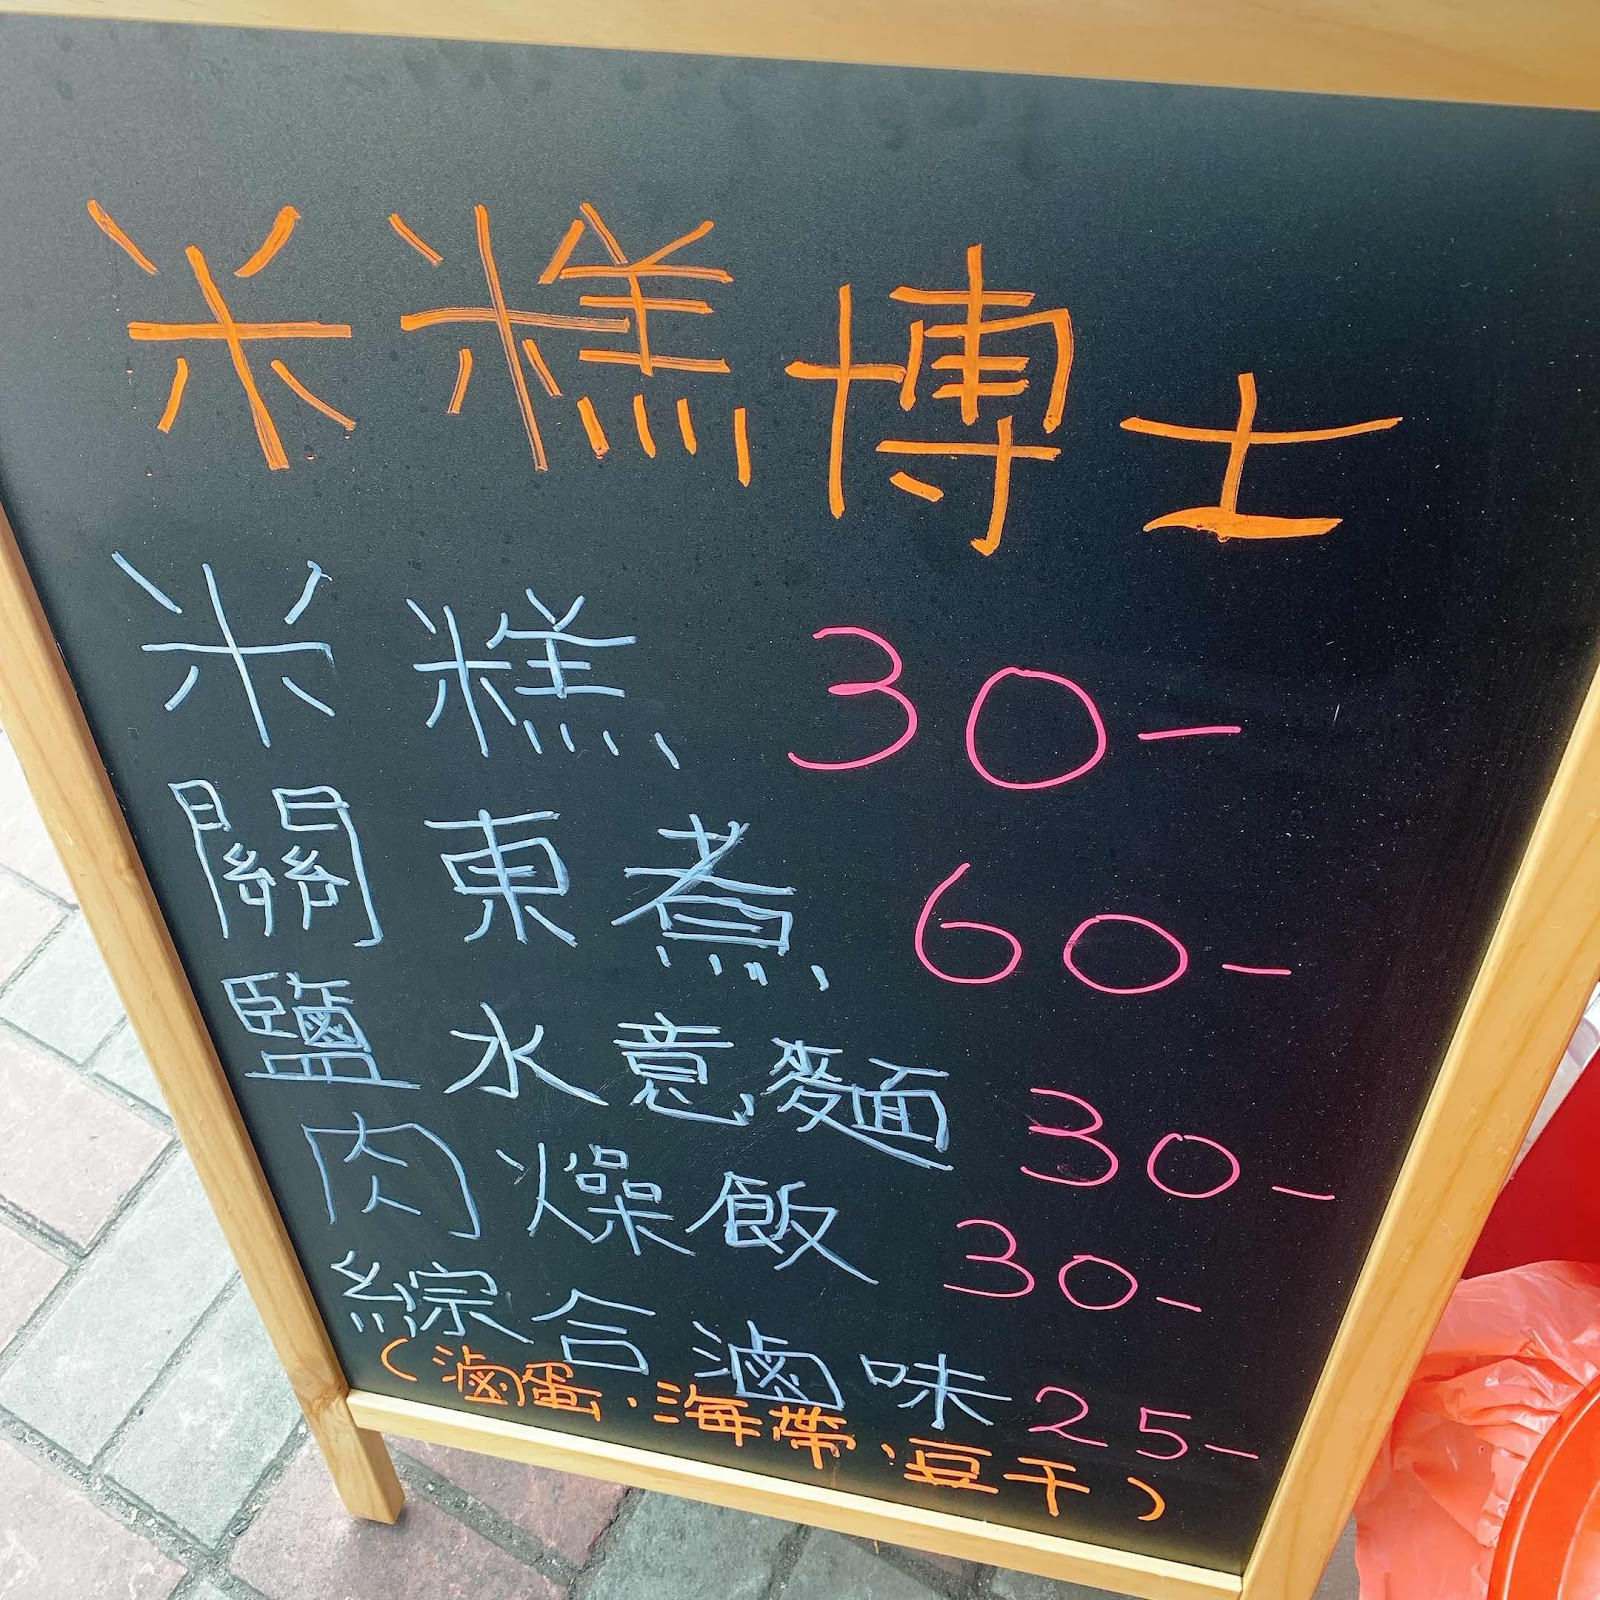 米糕博士
米糕 30-
關東煮 60-
鹽水意麵 30-
肉燥飯 30-
綜合滷味 25-
(滷蛋、海帶、豆干)